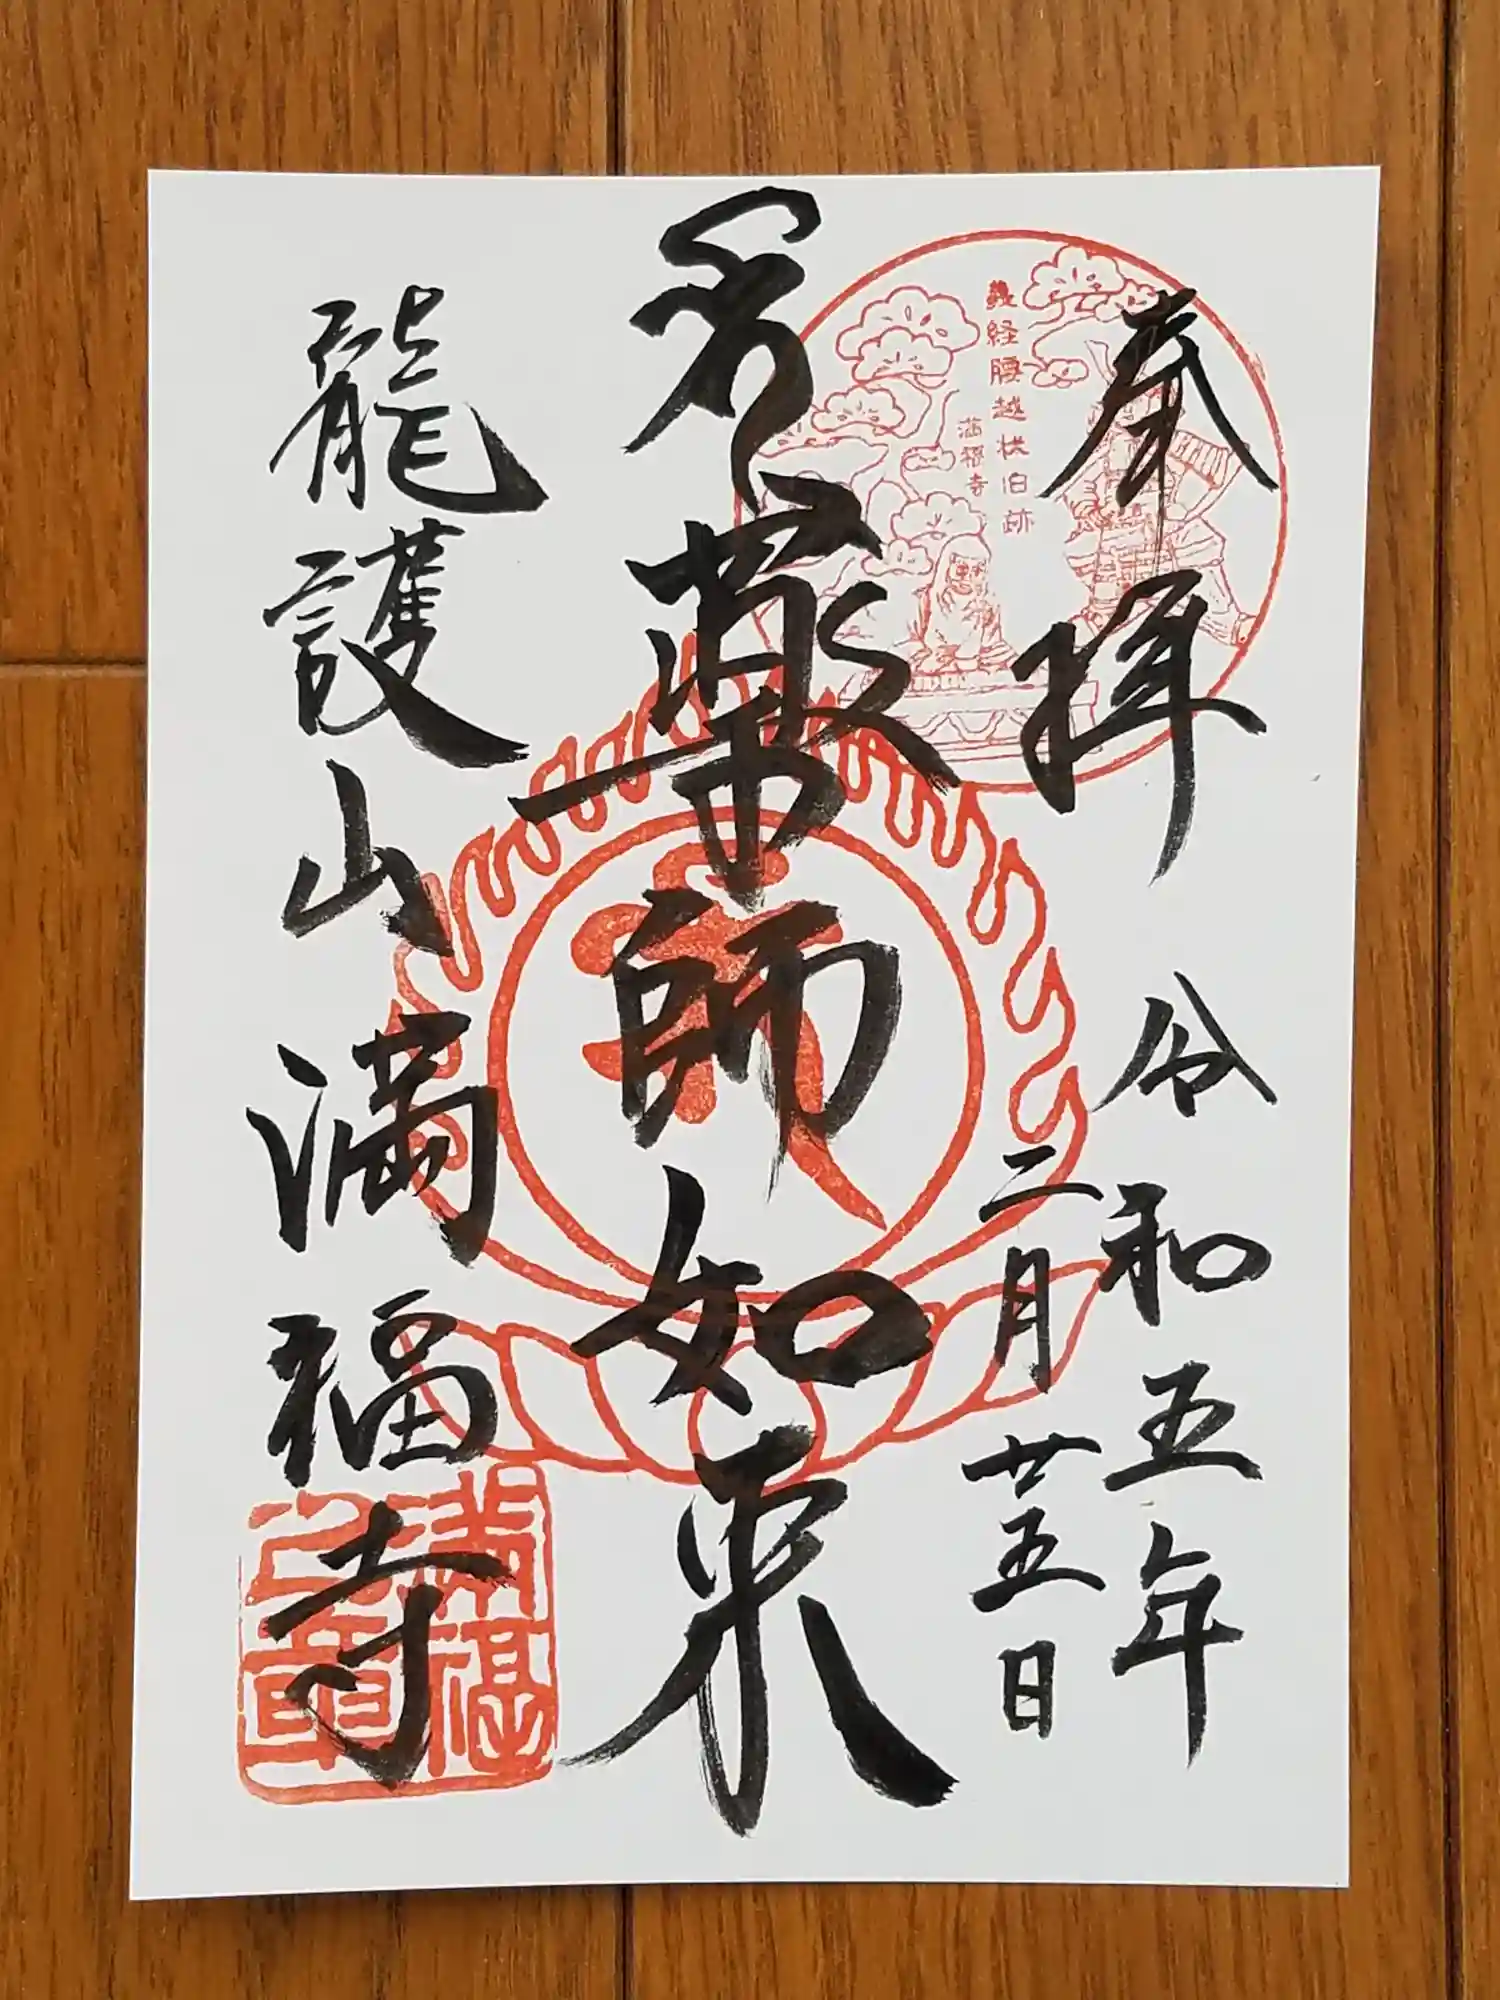 奉拝
令和五年
二月廿五日
義経腰越状旧跡
満福寺
薬師如来
龍護山満福寺
満福
之章